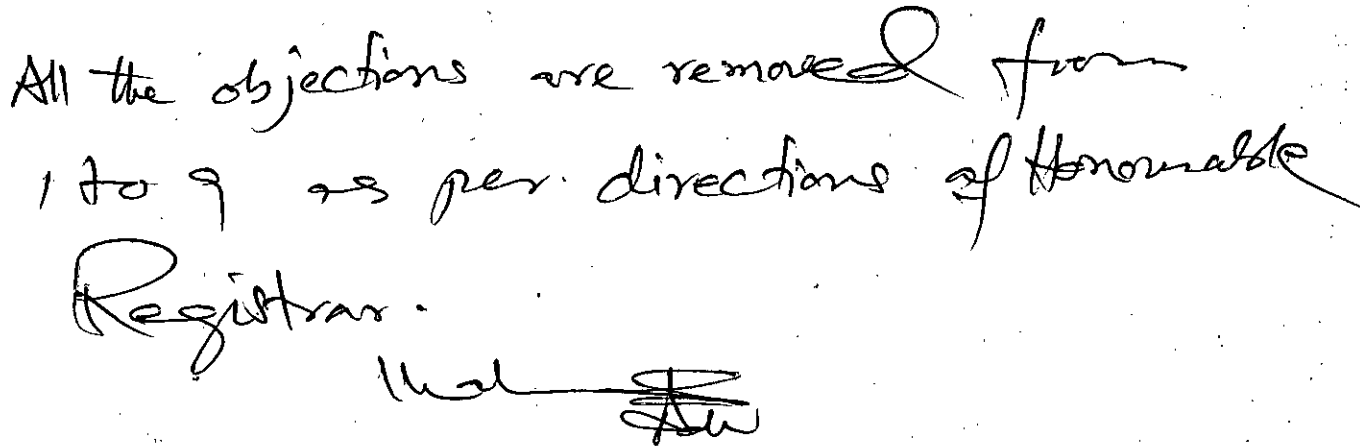 All the objections are removed from
1 to 9 as per. directions of Honourable
Registrar.